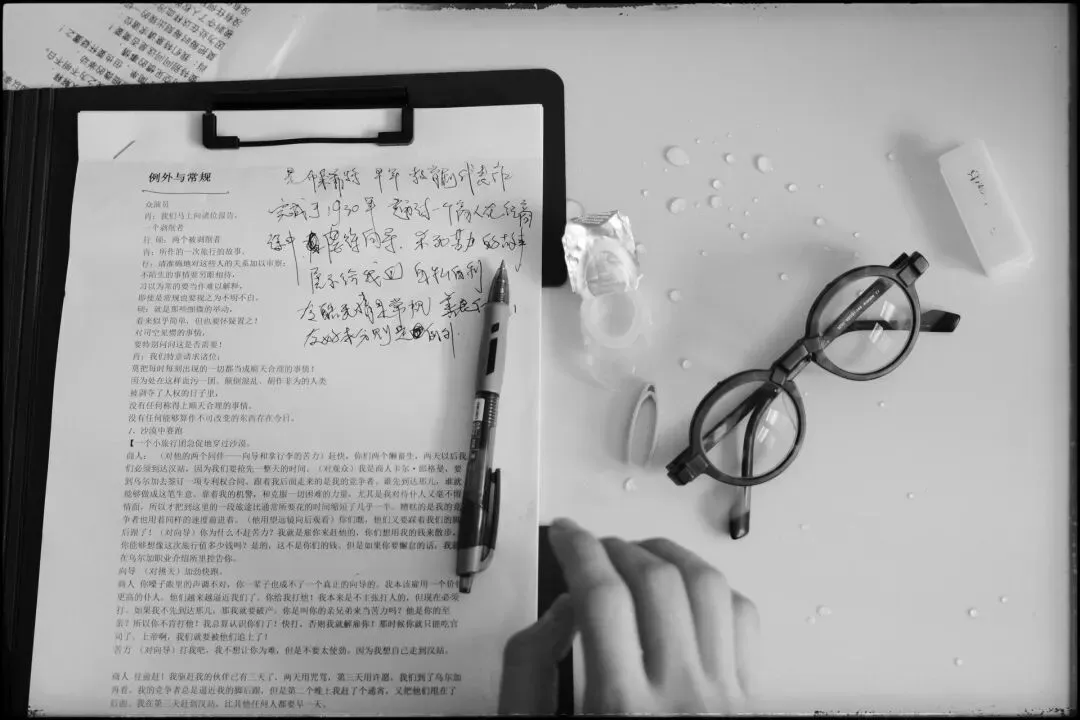 例外与常规
众演员
肖：我们马上向诸位报告，
一个剥削者
任 硕：两个被剥削者
肖：所作的一次旅行的故事。
任：请准确地对这些人的关系加以审察：
不陌生的事情要另眼相待，
习以为常的要当作难以解释，
即使是常规也要视之为不明不白。
硕：就是那些细微的举动，
看来似乎简单，但也要怀疑置之！
对司空见惯的事情，
要特别问问这是否需要！
肖：我们特意请求诸位：
莫把每时每刻出现的一切都当成顺天合理的事情！
因为处在这样血污一团、颠倒混乱、胡作非为的人类
被剥夺了人权的日子里，
没有任何称得上顺天合理的事情，
没有任何能够算作不可改变的东西存在今日。
1、沙漠中赛跑
【一个小旅行团急促地穿过沙漠。
商人：（对他的两个同伴——向导和拿行李的苦力）赶快，你们两个懒畜生，两天以后我
们必须到达汉站，因为我们要抢先一整天的时间。（对观众）我是商人卡尔·郎格曼，要
到乌尔加去签订一项专利权合同。跟着我后面走来的是我的竞争者。谁先到达那儿，谁就
能够做成这笔生意。靠着我的机警，和克服一切困难的力量，尤其是我对待仆人又毫不留
情面，所以才把到这里的一段旅途比通常所要花的时间缩短了几乎一半。糟糕的是我的竞
争者也用着同样的速度前进着。（他用望远镜向后观看）你们瞧，他们又要踩着我们的脚
后跟了！（对向导）你为什么不赶苦力？我就是雇你来赶他的，你们想用我的钱来散步。
你能够想像这次旅行值多少钱吗？是的，这不是你们的钱。但是如果你要懈怠的话，我就
在乌尔加职业介绍所里控告你。
向导 （对挑夫）加劲快跑。
商人 你嗓子眼里的声调不对，你一辈子也成不了一个真正的向导的。我本该雇用一个价钱
更高的仆人。他们越来越逼近我们了。你给我打他！我本来是不主张打人的，但现在必须
打。如果我不先到达那儿，那我就要破产。你是叫你的亲兄弟来当苦力吗？他是你的至
亲？所以你不肯打他！我总算认识你们了！快打，否则我就解雇你！那时候你就只能吃官
司了。上帝啊，我们就要被他们追上了！
苦力 （对向导）打我吧，我不想让你为难，但是不要太使劲，因为我想自己走到汉站。
商人 往前赶！我驱赶我的伙伴已有三天了，两天用咒骂，第三天用许愿。我们到了乌尔加
再看。我的竞争者总是逼近我的脚后跟，但是第二个晚上我赶了个通宵，又把他们甩在了
后面。我在第三天赶到汉站，比其他任何人都要早一天。
是布莱希特 早年 教育剧代表作
完成于1930年 通过一个商人在经商
途中 虐待向导、杀死苦力的故事
展示给我们 自私自利